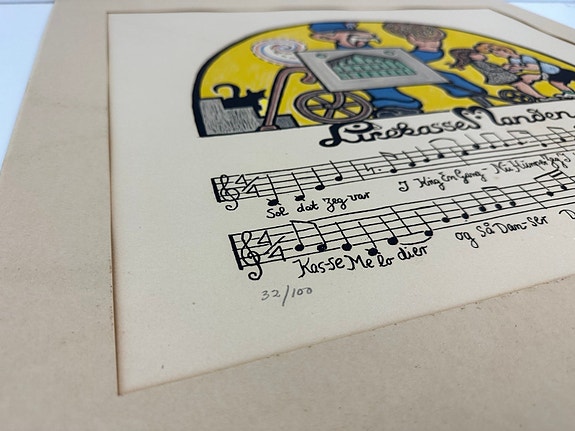 LirekasseManden
Sol dat Jeg var I Krig En Gang Nu Humper Jeg
Kas-se Me lo dier og Så Dan-ser D
32/100